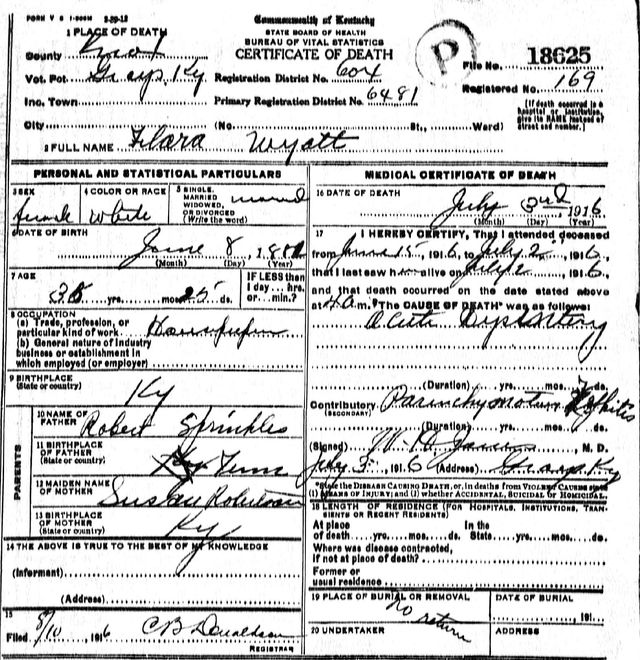 FORM V S 1-500M 2-29-12
Commonwealth of Kentucky
STATE BOARD OF HEALTH
BUREAU OF VITAL STATISTICS
CERTIFICATE OF DEATH
P
1 PLACE OF DEATH
County Knox
Vot. Pct. Grays Ky Registration District No. 604
File No. 18625
Inc. Town Primary Registration District No. 6481
Registered No. 169
City (No. St., Ward)
[If death occurred in a hospital or institution, give its NAME instead of street and number.]
2 FULL NAME Flara Wyatt
PERSONAL AND STATISTICAL PARTICULARS
3 SEX female
4 COLOR OR RACE White
5 SINGLE, MARRIED WIDOWED, OR DIVORCED (Write the word) married
6 DATE OF BIRTH
June 8, 188
(Month) (Day) (Year)
7 AGE
35 yrs. mos. 25 ds.
IF LESS than 1 day ... hrs. or ... min.?
8 OCCUPATION
(a) Trade, profession, or particular kind of work Housekeeper
(b) General nature of industry business or establishment in which employed (or employer)
9 BIRTHPLACE (State or country) Ky
PARENTS
10 NAME OF FATHER Robert Sprinkles
11 BIRTHPLACE OF FATHER (State or country) Tenn
12 MAIDEN NAME OF MOTHER Susan Robertson
13 BIRTHPLACE OF MOTHER (State or country) Ky
14 THE ABOVE IS TRUE TO THE BEST OF MY KNOWLEDGE
(Informant)
(Address)
15
Filed 8/10 1916 C B Donaldson
REGISTRAR
MEDICAL CERTIFICATE OF DEATH
16 DATE OF DEATH
July 3rd, 1916
(Month) (Day) (Year)
17 I HEREBY CERTIFY, That I attended deceased
from June 15 1916, to July 2 1916,
that I last saw h alive on July 2, 1916,
and that death occurred on the date stated above
at 4 a m. The CAUSE OF DEATH was as follows:
Acute Dysentery
(Duration) yrs. mos. ds.
Contributory (SECONDARY) Parenchymatous Nephritis
(Duration) yrs. mos. ds.
(Signed) W H M. D.
July 5, 1916 (Address) Grays Ky
*State the DISEASE CAUSING DEATH, or, in deaths from VIOLENT CAUSES state (1) MEANS OF INJURY; and (2) whether ACCIDENTAL, SUICIDAL or HOMICIDAL.
18 LENGTH OF RESIDENCE (FOR HOSPITALS, INSTITUTIONS, TRANSIENTS OR RECENT RESIDENTS)
At place of death yrs. mos. ds. In the State yrs. mos. ds.
Where was disease contracted, if not at place of death?
Former or usual residence
19 PLACE OF BURIAL OR REMOVAL No return
DATE OF BURIAL , 191
20 UNDERTAKER
ADDRESS